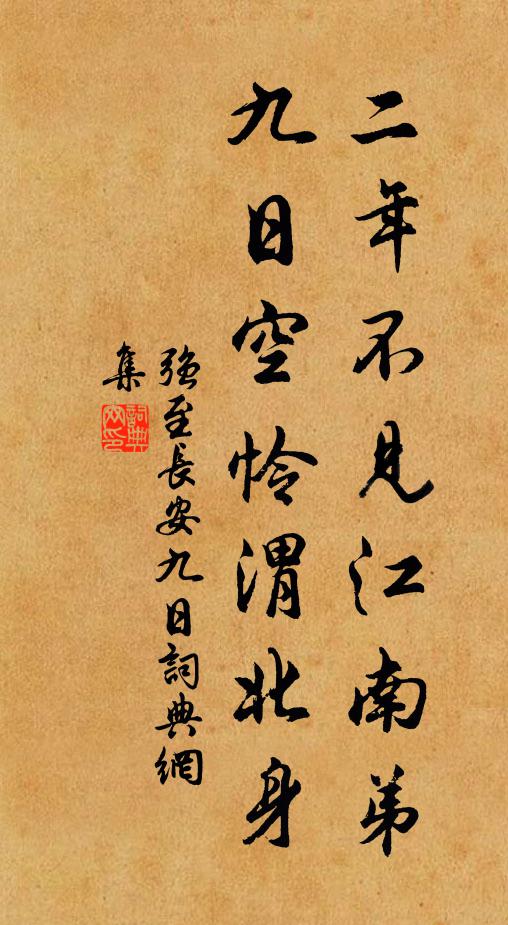 二年不見江南弟
九日空怜渭北身
强至長安九日詞典網
集
詞典
网印